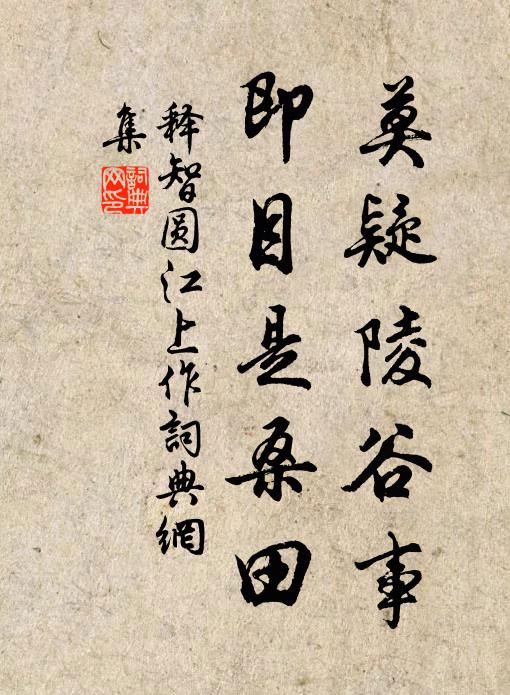 莫疑陵谷事
即目是桑田
释智圆江上作詞典網
集
詞典
网印